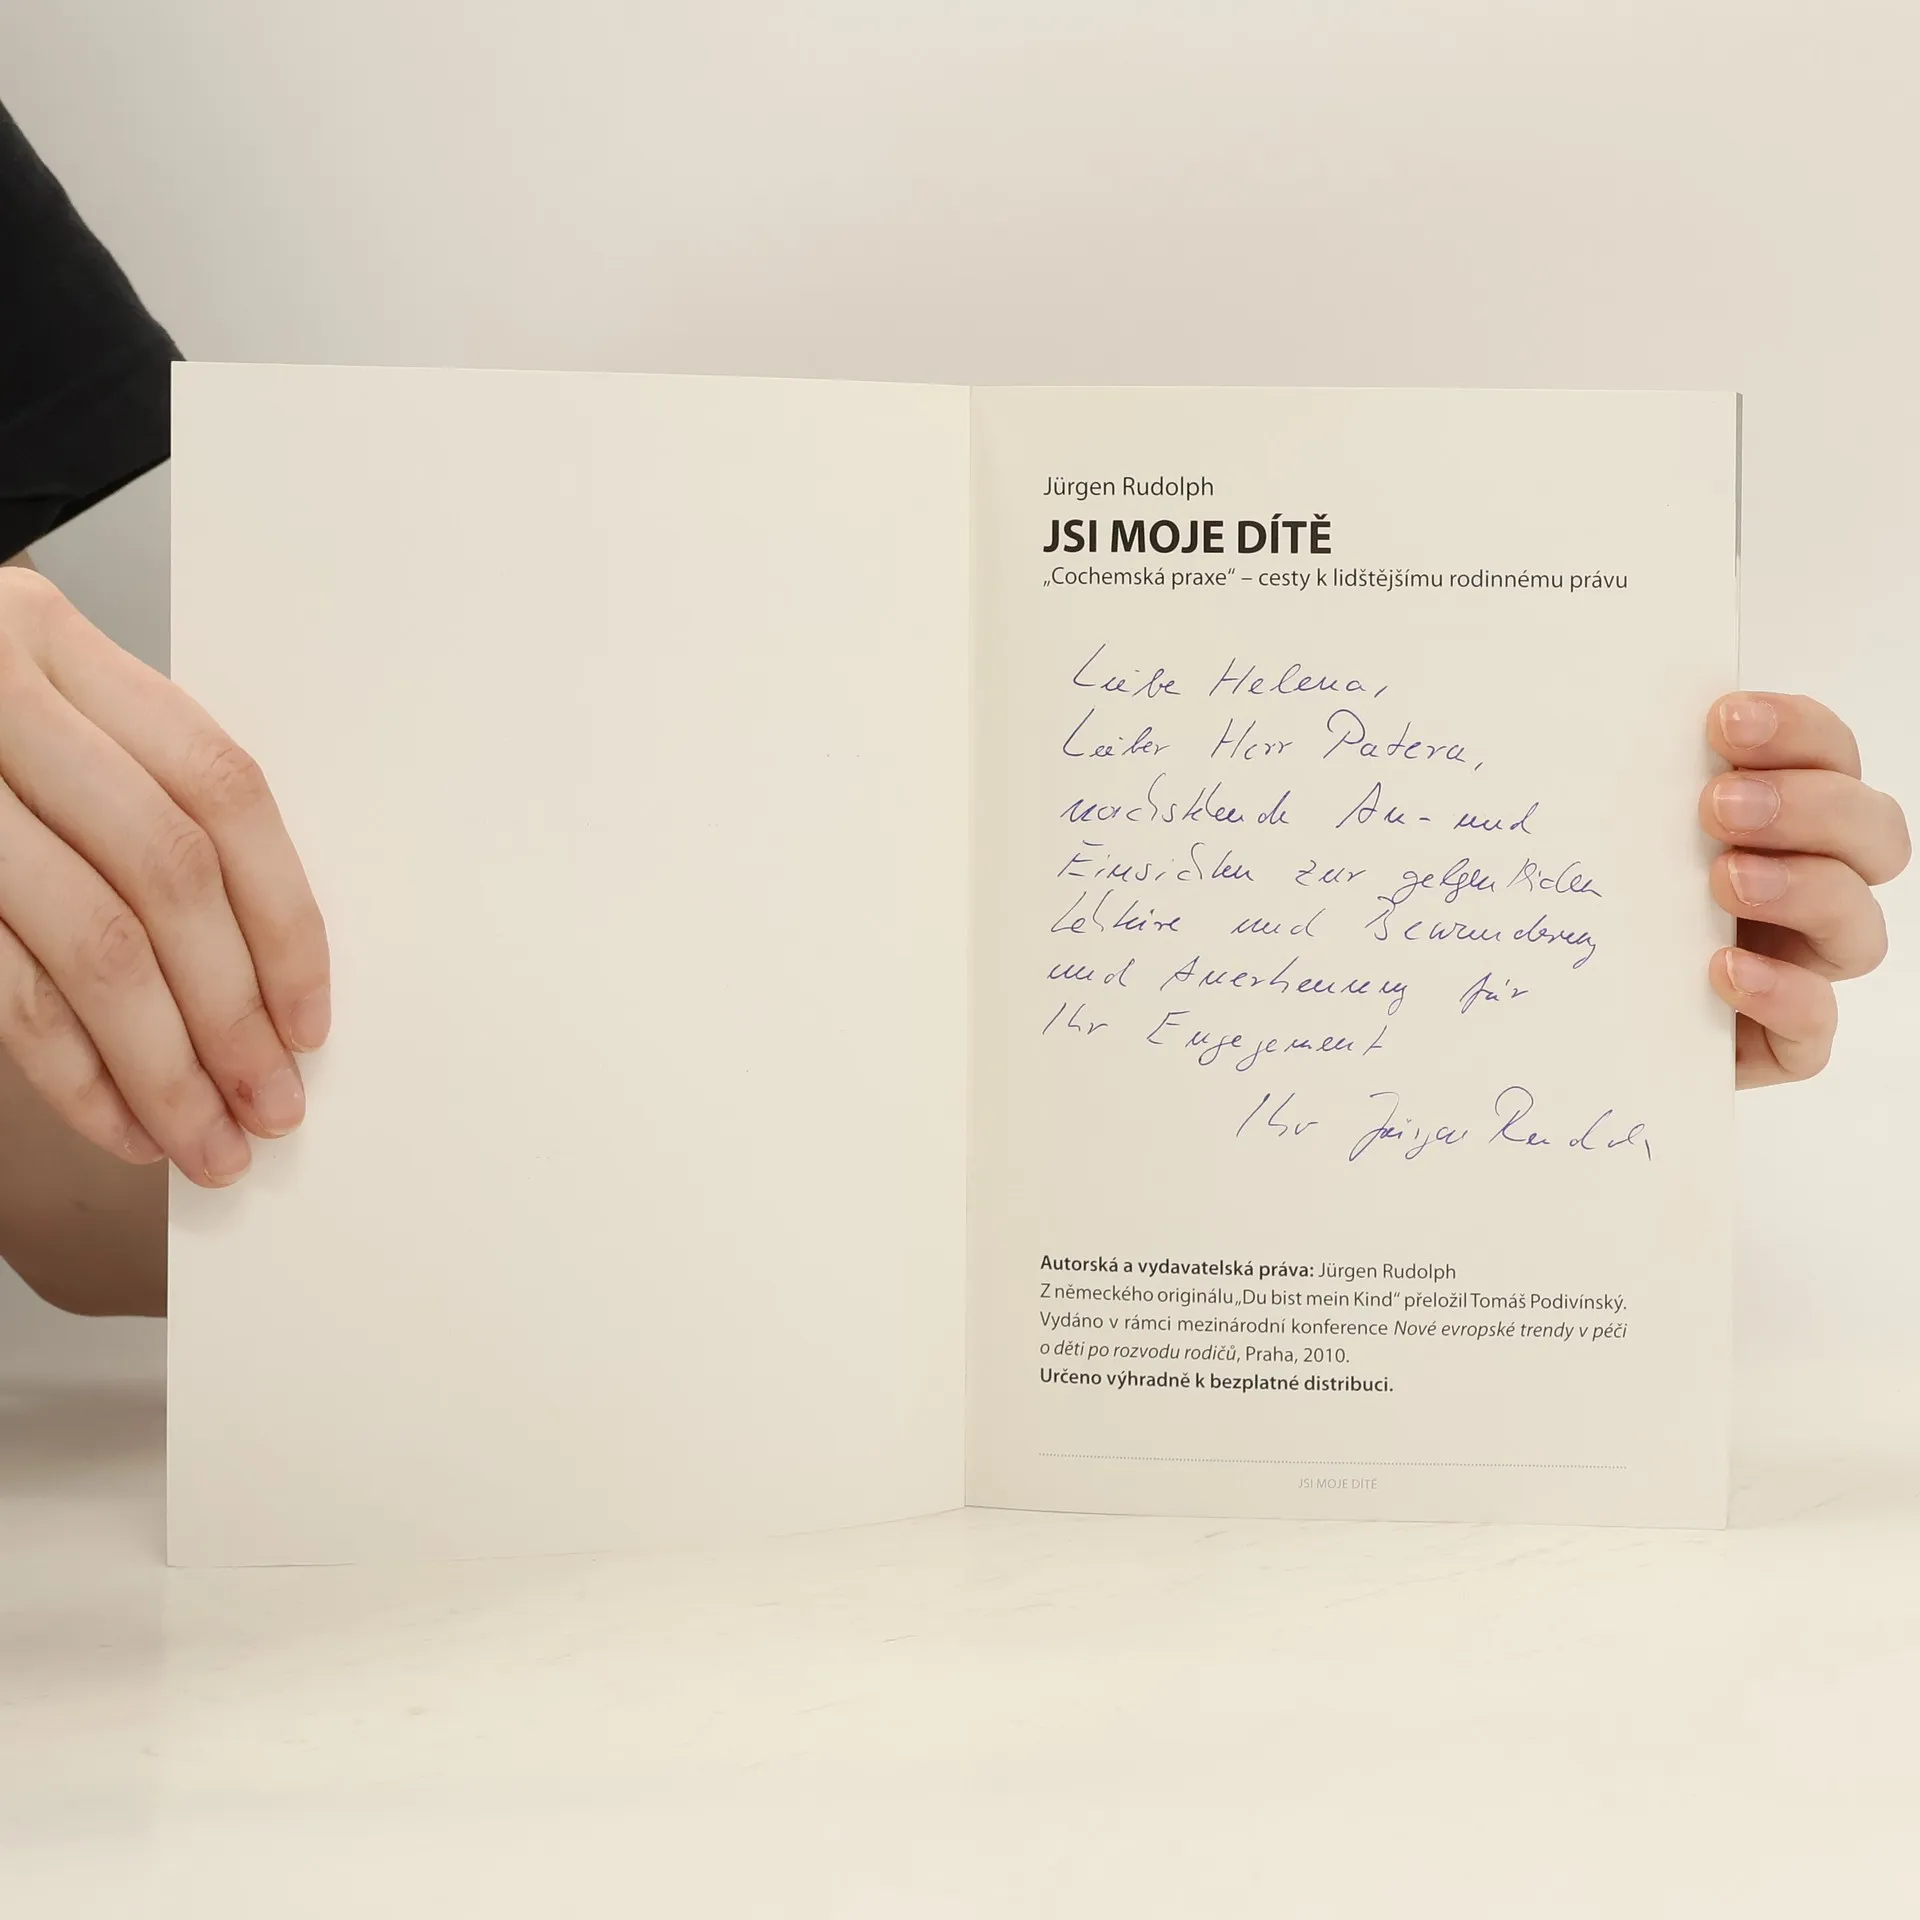 Jürgen Rudolph
JSI MOJE DÍTĚ
„Cochemská praxe“ – cesty k lidštějšímu rodinnému právu
Liebe Helena,
Lieber Herr Patera,
nachstehende An- und
Einsichten zur gelegentlichen
Lektüre und Bewunderung
und Anerkennung für
Ihr Engagement
Ihr Jürgen Rudolph
Autorská a vydavatelská práva: Jürgen Rudolph
Z německého originálu „Du bist mein Kind“ přeložil Tomáš Podivínský.
Vydáno v rámci mezinárodní konference Nové evropské trendy v péči
o děti po rozvodu rodičů, Praha, 2010.
Určeno výhradně k bezplatné distribuci.
JSI MOJE DÍTĚ